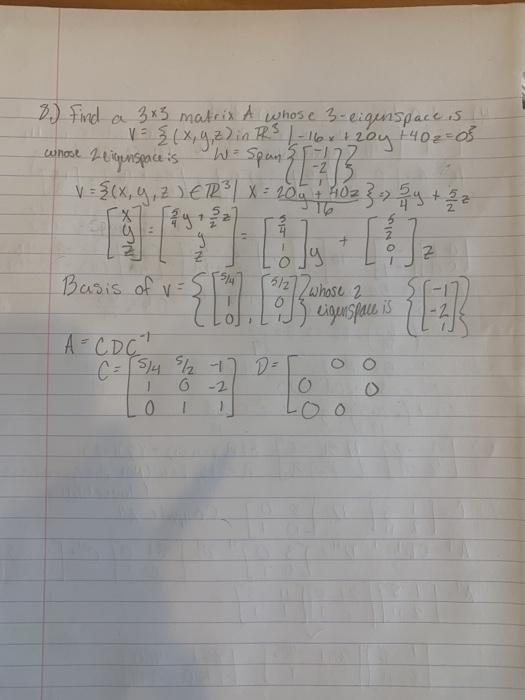 8.) Find a 3x3 matrix A whose 3-eigenspace is
V = {(x, y, z) in ℝ³ | -16x + 20y + 40z = 0}
whose 2 eigenspace is W = Span {[-1 -2 1]}
V = {(x, y, z) ∈ ℝ³ | x = (20y + 40z)/16} => 5/4 y + 5/2 z
[x y z] = [5/4 y + 5/2 z, y, z] = [5/4 1 0] y + [5/2 0 1] z
Basis of V = {[5/4 1 0], [5/2 0 1]} whose 2 eigenspace is {[-1 -2 1]}
A = CDC⁻¹
C = [5/4 5/2 -1 D = [ 0 0
1 0 -2 0 0
0 1 1] 0 0